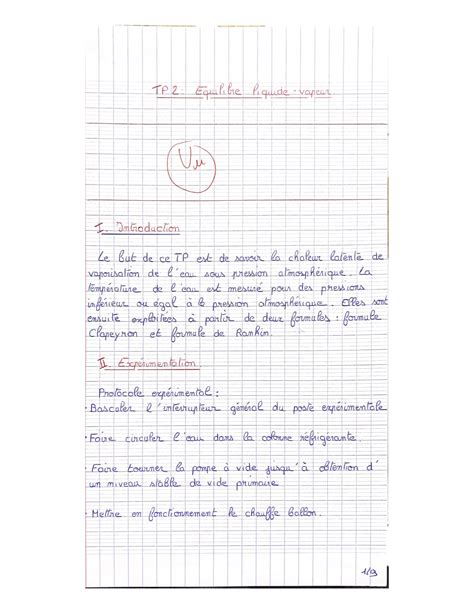 TP2: Equilibre liquide-vapeur
Vu
I. Introduction
Le but de ce TP est de savoir la chaleur latente de
vaporisation de l'eau sous pression atmosphérique. La
température de l'eau est mesuré pour des pressions
inférieur ou égal à le pression atmosphérique. Elles sont
ensuite exploitées à partir de deux formules : formule
Clapeyron et formule de Rankin.
II. Expérimentation
Protocole expérimental :
- Bascoler l'interrupteur général du poste expérimentale
- Faire circuler l'eau dans la colonne réfrigerante.
- Faire tourner la pompe à vide jusqu'à obtention d'
un niveau stable de vide primaire
- Mettre en fonctionnement le chauffe ballon.
1/9